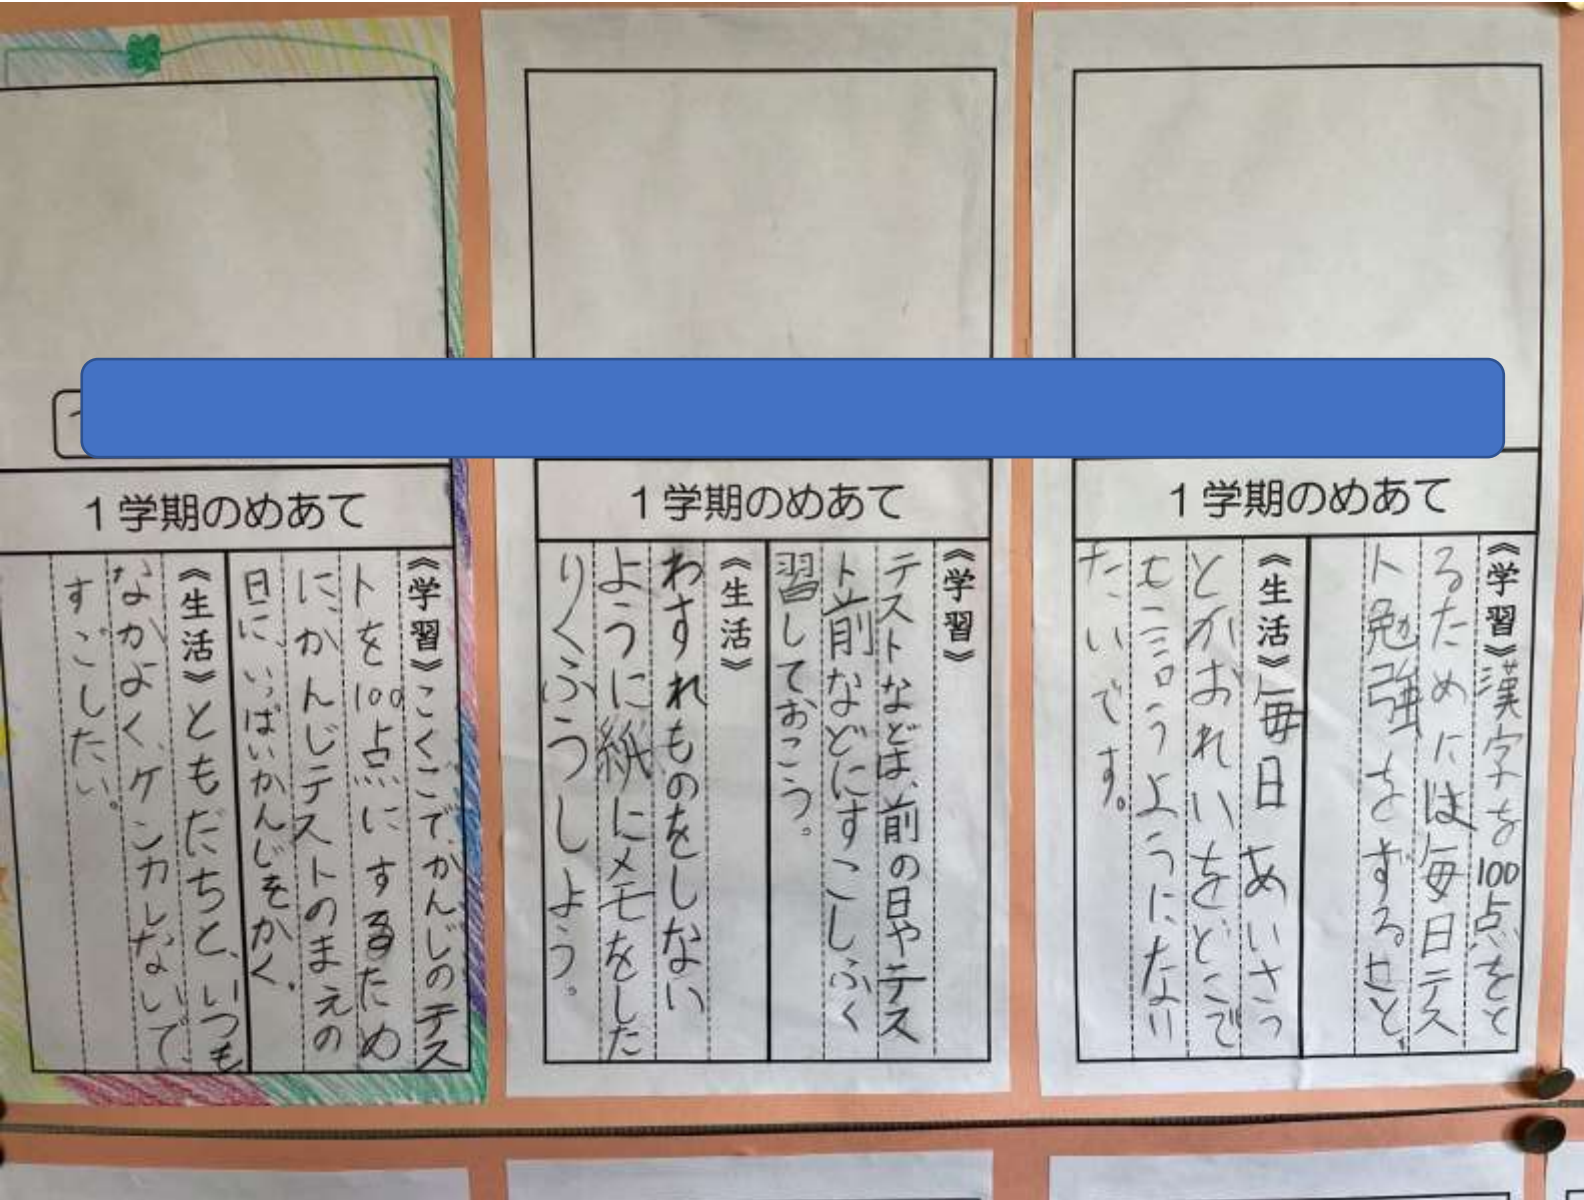 1学期のめあて
《学習》こくごでかんじのテス
トを100点にするため
に、かんじテストのまえの
日に、いっぱいかんじをかく。
《生活》ともだちと、いつも
なかよく、ケンカしないで、
すごしたい。
1学期のめあて
《学習》
テストなどは、前の日やテス
ト前などにすこしふく
習しておこう。
《生活》
わすれものをしない
ように紙にメモをした
りくふうしよう。
1学期のめあて
《学習》漢字を100点をと
るためには毎日テス
ト勉強をすること、
《生活》毎日あいさつ
とかおれいをどこで
も言うようになり
たいです。